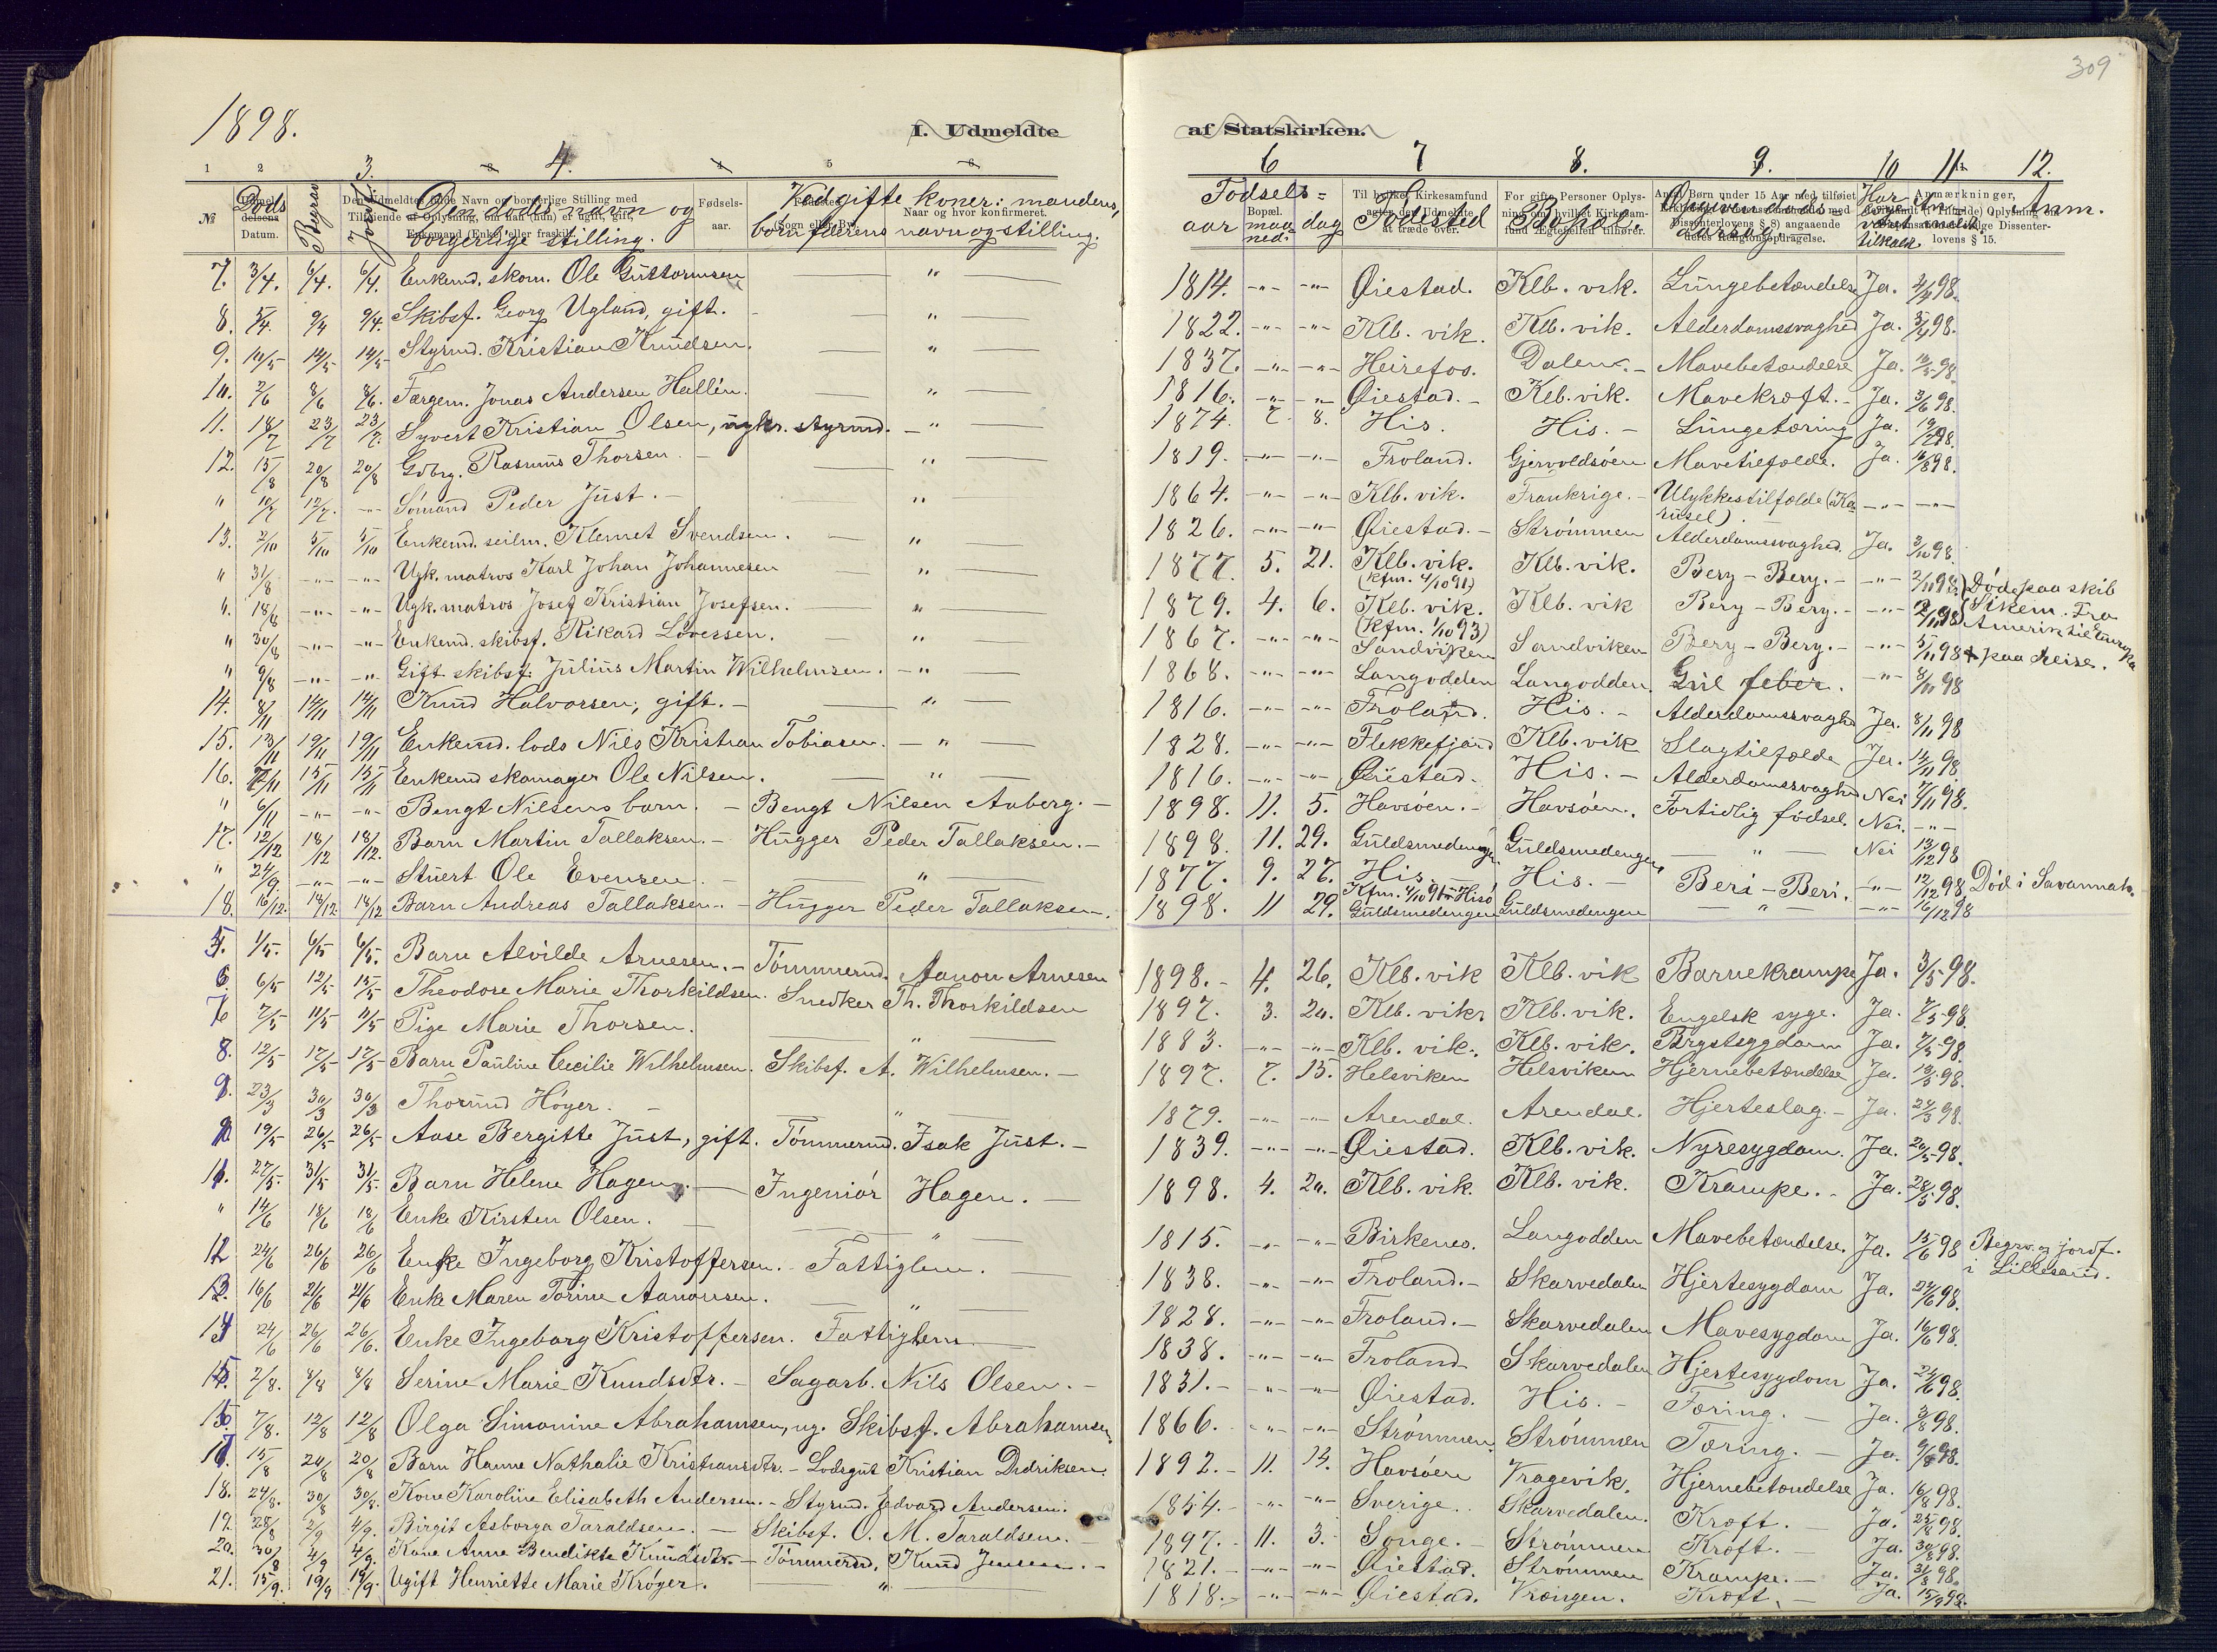 309
1898.
I. Udmeldte af Statskirken.
1 2 3. 4. 5 6 7 8. 9. 10 11. 12.
№ Døds Datum. Begrav Den dødes navn og borgerlige stilling. Fødsels-aar. Ved gifte koner: mandens, børn faderens navn og stilling. Fødsels= aar maaned. dag Fødested Bopæl. Opgiven dødsaarsag Anm.
7. 3/4. 6/4. 6/4. Enkemd. skom. Ole Guttormsen — " — 1814. -"- -"- Øiestad. Klb. vik. Lungebetændelse Ja. 4/4 98.
8. 5/4. 9/4 9/4. Skibsf. Georg Ugland, gift. - " — 1822. -"- -"- Klb. vik. Klb. vik. Alderdomssvaghed Ja. 5/4 98.
9. 10/5 14/5 14/5 Styrmd. Kristian Knudsen. — " — 1837. -"- -"- Heirefos. Dalen. - Mavebetændelse Ja. 10/5 98.
10. 2/6 8/6 8/6. Færgem. Jonas Andersen Hallén. — " — 1816. -"- -"- Øiestad. - Klb. vik. Mavekræft. - Ja. 3/6 98.
11. 18/7 23/7 23/7. Syvert Kristian Olsen, ugkr. styrmd. - " — 1874. 7. 8. His. His. - Lungetæring Ja. 19/7 98.
12. 15/8 20/8 20/8 Gdbrg. Rasmus Thorsen. - — " — 1819. -"- -"- Froland. Gjervoldsøen Mavetilfælde. Ja. 16/8 98.
" 10/7 12/7. -"- Sømand Peder Just. - — " — 1864. -"- -"- Klb. vik. Frankrige. - Ulykkestilfælde (Karusel) -"- -"-
13. 2/10 5/10 5/10 Enkemd. seilm. Klemet Svendsen. — " — 1826. -"- -"- Øiestad. - Strømmen Alderdomssvaghed. Ja. 3/10 98.
" 31/8 -"- -"- Ugk. matros Karl Johan Johannesen — " — 1877. 5. 21. Klb. vik. (kfm. 4/10 91) Klb. vik. Bery - Bery. - -"- 2/11 98. Døde paa skib
". 18/8 -"- -"- Ugk. matros Josef Kristian Josefsen. — " — 1879. 4. 6. Klb. vik. (kfm. 1/10 93) Klb. vik Bery - Bery. - -"- 2/11 98 Sikem. Fra
" 30/8 -"- -"- Enkemd. skibsf. Rikard Løversen. — " — 1867. -"- -"- Sandviken Sandviken Bery - Bery. - -"- 5/11 98 Amerika til Europa
" 9/8 -"- -"- Gift skibsf. Julius Martin Wilhelmsen. - " — 1868. -"- -"- Langodden Langodden. Gul feber. -"- 8/11 98 paa reise.
14. 8/11 14/11 14/11 Knud Halvorsen, gift. - — " — 1816. -"- -"- Froland. His. - Alderdomssvaghd Ja. 8/11 98
15. 13/11 19/11 19/11 Enkemd. lods Nils Kristian Tobiasen. - " — 1828. -"- -"- Flekkefjord Klb. vik Slagtilfælde Ja. 14/11 98
16. 15/11 15/11 Enkemd skomager Ole Nilsen. — " — 1816. -"- -"- Øiestad. His. - Alderdomssvaghed Nei 98.
" 6/11 -"- -"- Bengt Nilsens barn. - Bengt Nilsen Aaberg. - 1898. 11. 5. Havsøen. - Havsøen. Fortidlig fødsel. Nei. -"-
17. 12/12 18/12 18/12. Barn Martin Tallaksen. - Hugger Peder Tallaksen. - 1898. 11. 29. Guldsmedengen Guldsmedengen — " — Nei 13/12 98
" 24/9. -"- -"- Stuert Ole Evensen. — " — 1877. 9. 27. His. Kfm. 4/10 91 Hisø His. - Beri - Beri. -"- 12/12 98 Død i Savannah.
18. 16/12. 18/12 18/12 Barn Andreas Tallaksen. - Hugger Peder Tallaksen. 1898. 11 29. Guldsmedengen Guldsmedengen — " — -"- 16/12 98
5. 1/5. 6/5 6/5. Barn Alvilde Arnesen. - Tømmermd. Aanon Arnesen 1898. - 4. 26. Klb. vik Klb. vik Barnekrampe Ja. 3/5 98.
6 6/5 12/5 15/5 Theodore Marie Thorkildsen. Snedker Th. Thorkildsen 1897. 3. 20. Klb. vik. Klb. vik. Engelsk syge. Ja. 98.
7 7/5 11/5 11/5 Pige Marie Thorsen. — " — 1883. -"- -"- Klb. vik. Klb. vik. Brystsygdom Ja. 7/5 98.
8. 12/5 17/5 17/5 Barn Pauline Cecilie Wilhelmsen. Skibsf. A. Wilhelmsen. - 1897. 7. 15. Helsviken Helsviken Hjernebetændelse Ja. 98.
9. 23/3 30/3 30/3 Thormud Høyer. - — " — 1879. -"- -"- Arendal. Arendal. Hjerteslag. - Ja. 24/3 98.
10 19/5 26/5 26/5 Aase Bergitte Just, gift. Tømmermd. Isak Just. - 1839. -"- -"- Øiestad. Klb. vik. Nyresygdom. Ja. 20/5 98.
11. 27/5 31/5 31/5. Barn Helene Hagen. — Ingeniør Hagen. - 1898. 4. 20. Klb. vik. Klb. vik. Krampe. - Ja. 28/5 98.
" 14/6 18/6 18/6 Enke Kirsten Olsen. — " — 1815. -"- -"- Birkenes. Langodden Mavebetændelse. Ja. 15/6 98 Begrv. og jordf. i Lillesand.
12 24/6 26/6 26/6 Enke Ingeborg Kristoffersen. - Fattiglem. — 1838. -"- -"- Froland. - Skarvedalen Hjertesygdom Ja. 24/6 98.
13. 16/6 21/6 21/6 Enke Maren Torine Aanonsen. — " — 1828. -"- -"- Froland. - Skarvedalen Mavesygdom Ja. 16/6 98.
14 24/6 26/6 26/6. Enke Ingeborg Kristoffersen. Fattiglem — 1838. -"- -"- Froland Skarvedalen Hjertesygdom Ja. 24/6 98.
15. 2/8. 8/8 8/8 Serine Marie Knudsdtr. - Sagarb. Nils Olsen. - 1831. - -"- -"- Øiestad. His. - Tæring. - Ja. 3/8 98.
16 7/8. 12/8 12/8 Olga Simonine Abrahamsen, ug. Skibsf. Abrahamsen. 1866. - -"- -"- Strømmen. Strømmen Tæring. - Ja. 9/8 98.
17. 15/8 20/8 20/8 Barn Hanne Nathalie Kristiansdtr. - Lodsgut Kristian Didriksen. 1892. - 11. 13. Havsøen Vragevik. Hjernebetændelse Ja. 16/8 98.
18. 24/8. 30/8 30/8. Kone Karoline Elisabeth Andersen. - Styrmd. Edvard Andersen. 1854. - -"- -"- Sverige. Skarvedalen. Kræft. - Ja. 25/8 98.
19. 28/8 2/9 4/9. Birgit Asborga Taraldsen. — Skibsf. O. M. Taraldsen. - 1897. - 11. 3. Songe. - Strømmen Kræft. - Ja. 30/8 98.
20. 30/8 4/9 4/9. Kone Anne Bendikte Knudsdtr. - Tømmermd. Knud Jensen. - 1821. - -"- -"- Øiestad. Strømmen Krampe. - Ja. 31/8 98.
21. 15/9. 19/9 19/9. Ugift Henriette Marie Krøger. — " — 1818. - -"- -"- Øiestad. Vrængen. Kræft. - Ja. 15/9 98.